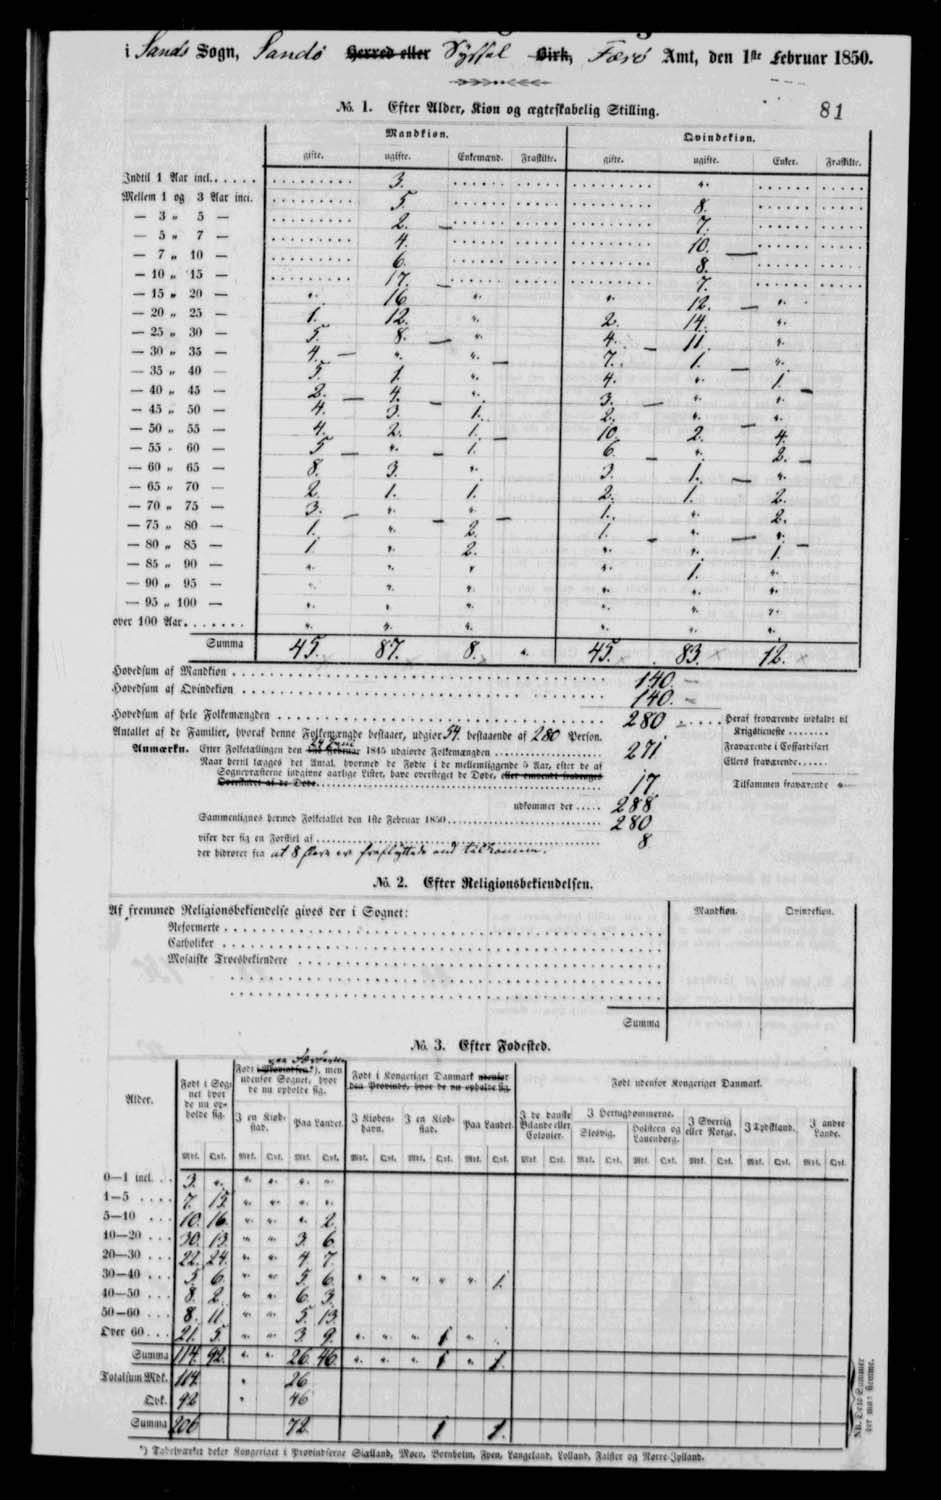 i Sands Sogn, Sandø Herred eller Syssel Birk, Færø Amt, den 1ste Februar 1850.
81
No. 1. Efter Alder, Kiøn og ægteskabelig Stilling.
Mandkiøn. Qvindekiøn.
gifte. ugifte. Enkemænd. Fraskilte. gifte. ugifte. Enker. Fraskilte.
Indtil 1 Aar incl. 3. „
Mellem 1 og 3 Aar incl. 5. 8.
— 3 „ 5 — 2. 7.
— 5 „ 7 — 4. 10.
— 7 „ 10 — 6. 8.
— 10 „ 15 — 17. 7.
— 15 „ 20 — „ 16 „ „ 12. „
— 20 „ 25 — 1. 12. „ 2. 14. „
— 25 „ 30 — 5. 8. „ 4. 11. „
— 30 „ 35 — 4. „ „ 7. 1. „
— 35 „ 40 — 5. 1. „ 4. „ 1.
— 40 „ 45 — 2. 4. „ 3. „ „
— 45 „ 50 — 4. 3. 1. 2. „ „
— 50 „ 55 — 4. 2. 1. 10. 2. 4.
— 55 „ 60 — 5 „ 1. 6. „ 2.
— 60 „ 65 — 8. 3. „ 3. 1. „
— 65 „ 70 — 2. 1. 1. 2. 1. 2.
— 70 „ 75 — 3. „ „ 1. „ 2.
— 75 „ 80 — 1. „ 2. 1. „ „
— 80 „ 85 — 1. „ 2. „ „ 1.
— 85 „ 90 — „ „ „ „ 1. „
— 90 „ 95 — „ „ „ „ „ „
— 95 „ 100 — „ „ „ „ „ „
over 100 Aar. „ „ „ „ „ „
Summa 45. 87. 8. „ 45. 83. 12.
Hovedsum af Mandkiøn 140.
Hovedsum af Qvindekiøn 140.
Hovedsum af hele Folkemængden 280
Heraf fraværende indkaldt til Krigstieneste
Antallet af de Familier, hvoraf denne Folkemængde bestaaer, udgiør 54. bestaaende af 280 Person.
Anmærkn. Efter Folketællingen den 1ste Februar 1845 udgiorde Folkemængden 271
Fraværende i Coffardifart
Naar hertil lægges det Antal, hvormed de Fødte i de mellemliggende 5 Aar, efter de af
Ellers fraværende
Sognepræsterne indgivne aarlige Lister, have oversteget de Døde, eller omvendt fradrages
Overskudet af de Døde 17
Tilsammen fraværende
udkommer der 288
Sammenlignes hermed Folketallet den 1ste Februar 1850 280
viser der sig en Forskiel af 8
der hidrører fra at 8 flere er fraflyttede end tilkomne.
No. 2. Efter Religionsbekiendelsen.
Af fremmed Religionsbekiendelse gives der i Sognet: Mandkiøn. Qvindekiøn.
Reformerte
Catholiker
Mosaiske Troesbekiendere
Summa
No. 3. Efter Fødested.
Alder.
Født i Sognet hvor de nu opholde sig.
Født i Provindsen*), men udenfor Sognet, hvor de nu opholde sig.
Født i Kongeriget Danmark udenfor den Provinds, hvor de nu opholde sig.
Født udenfor Kongeriget Danmark.
I en Kiøbstad. Paa Landet. I Kiøbenhavn. I en Kiøbstad. Paa Landet. I de danske Bilande eller Colonier. I Hertugdømmerne. Slesvig. Holsteen og Lauenborg. I Sverrig eller Norge. I Tydskland. I andre Lande.
Mdk. Qvk. Mdk. Qvk. Mdk. Qvk. Mdk. Qvk. Mdk. Qvk. Mdk. Qvk. Mdk. Qvk. Mdk. Qvk. Mdk. Qvk. Mdk. Qvk. Mdk. Qvk. Mdk. Qvk.
0—1 incl. 3. „ „ „ „ „
1—5 7. 15. „ „ „ „
5—10 10. 16. „ „ „ 2.
10—20 30. 13. „ „ 3. 6.
20—30 22. 24. „ „ 4. 7.
30—40 5. 6. „ „ 5. 6. „ „ „ „ „ 1.
40—50 8. 2. „ „ 6. 3.
50—60 8. 11 „ „ 5. 13.
Over 60 21. 5. „ „ 3. 9. „ „ „ 1 „
Summa 114. 92. „ „ 26. 46. „ „ „ 1 „ 1.
Totalsum Mdk. 114. „ 26
Qvk. 92 „ 46
Summa 206 72. 1 1.
NB. Disse Summer
*) Tabelværket deler Kongeriget i Provindserne Siælland, Møen, Bornholm, Fyen, Langeland, Lolland, Falster og Nørre-Jylland.